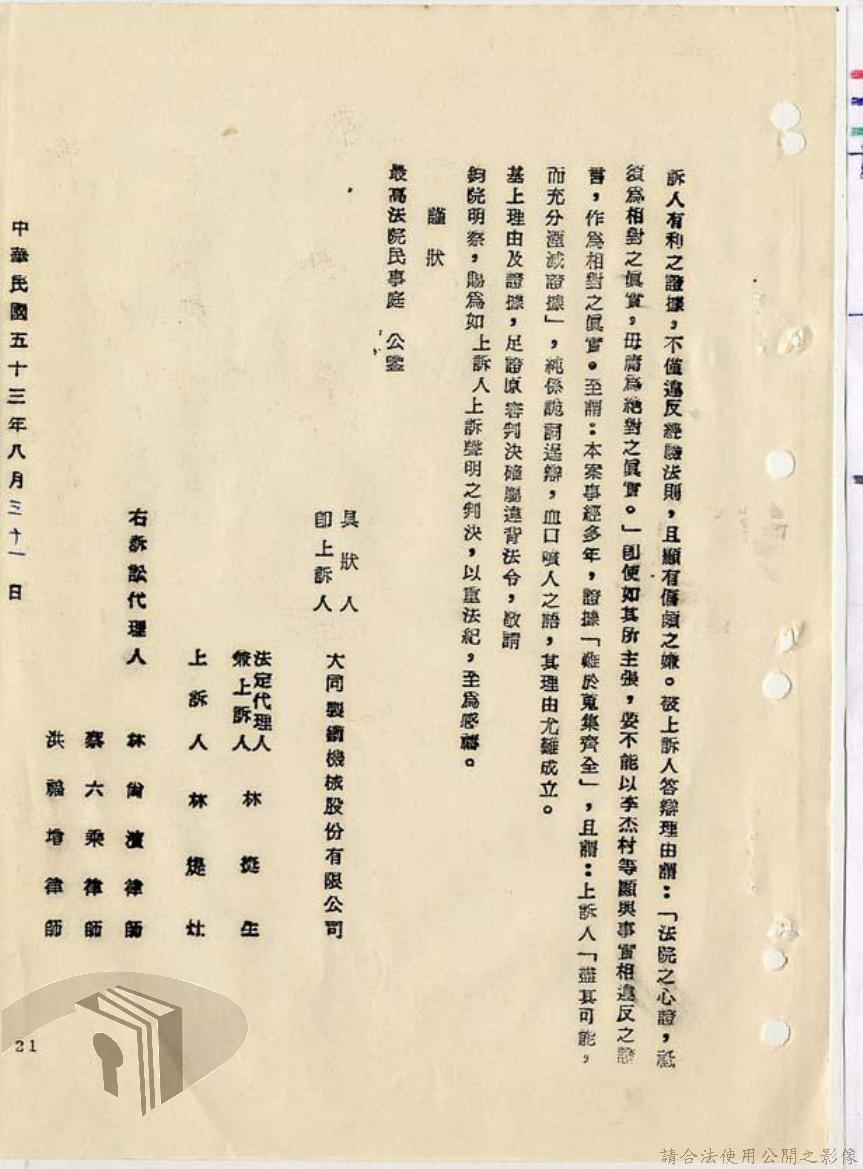 訴人有利之證據，不僅違反經驗法則，且顯有偏頗之嫌。被上訴人答辯理由謂：「法院之心證，祇
須為相對之眞實，毋庸為絶對之眞實。」卽使如其所主張，要不能以李杰村等顯與事實相違反之證
言，作為相對之眞實。至謂：本案事經多年，證據「難於蒐集齊全」，且謂：上訴人「盡其可能，
而充分湮滅證據」，純係詭詞逞辯，血口噴人之語，其理由尤難成立。
基上理由及證據，足證原審判決確屬違背法令，敬請
鈞院明察，賜為如上訴人上訴聲明之判決，以重法紀，至為感禱。
謹狀
最高法院民事庭 公鑒
具狀人
卽上訴人 大同製鋼機械股份有限公司
法定代理人
兼上訴人 林挺生
上訴人 林堤灶
右訴訟代理人 林尙濱律師
蔡六乘律師
洪福增律師
中華民國五十三年八月三十一日
21
請合法使用公開之影像